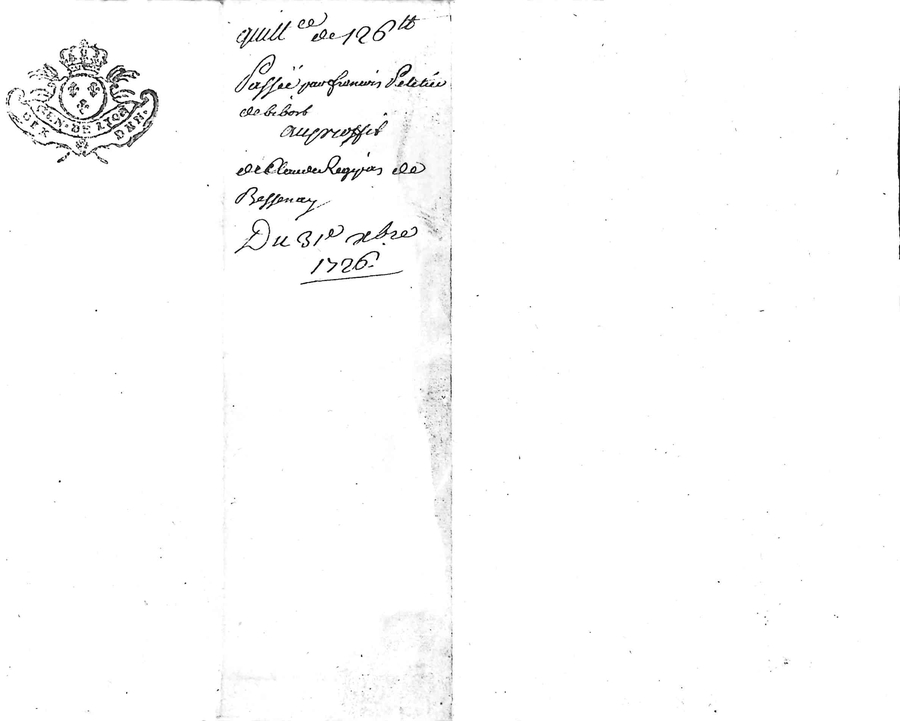 GEN. DE LYON
quitt.ce de 126 tt
Passée par francois Petitie
de bibost
au proffit
de Claude Regipas de
Bessenay
Du 31e xbre
1726.